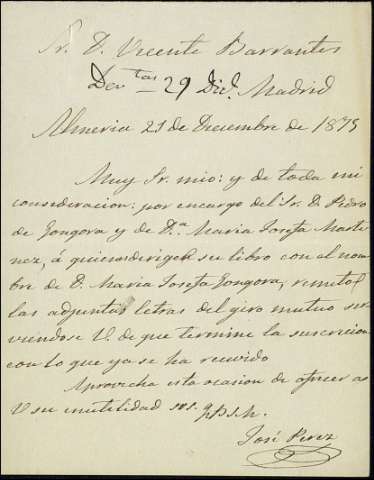 Sr. D. Vicente Barrantes
Devtas 29 Dic. Madrid
Almeria 21 de Diciembre de 1875
Muy Sr. mio: y de toda mi
consideracion: por encargo del Sr. D. Pedro
de Gongora y de D.a Maria Josefa Marti
nez, á quienes dirige su libro con el nom
bre de D. Maria Josefa Gongora, remito
las adjuntas letras del giro mutuo sir
viendose V. de que termine la suscricion
con lo que ya se ha recivido
Aprovecha esta ocasion de ofrecer a
V su inutilidad s.s. q.b.s.m.
José Perez